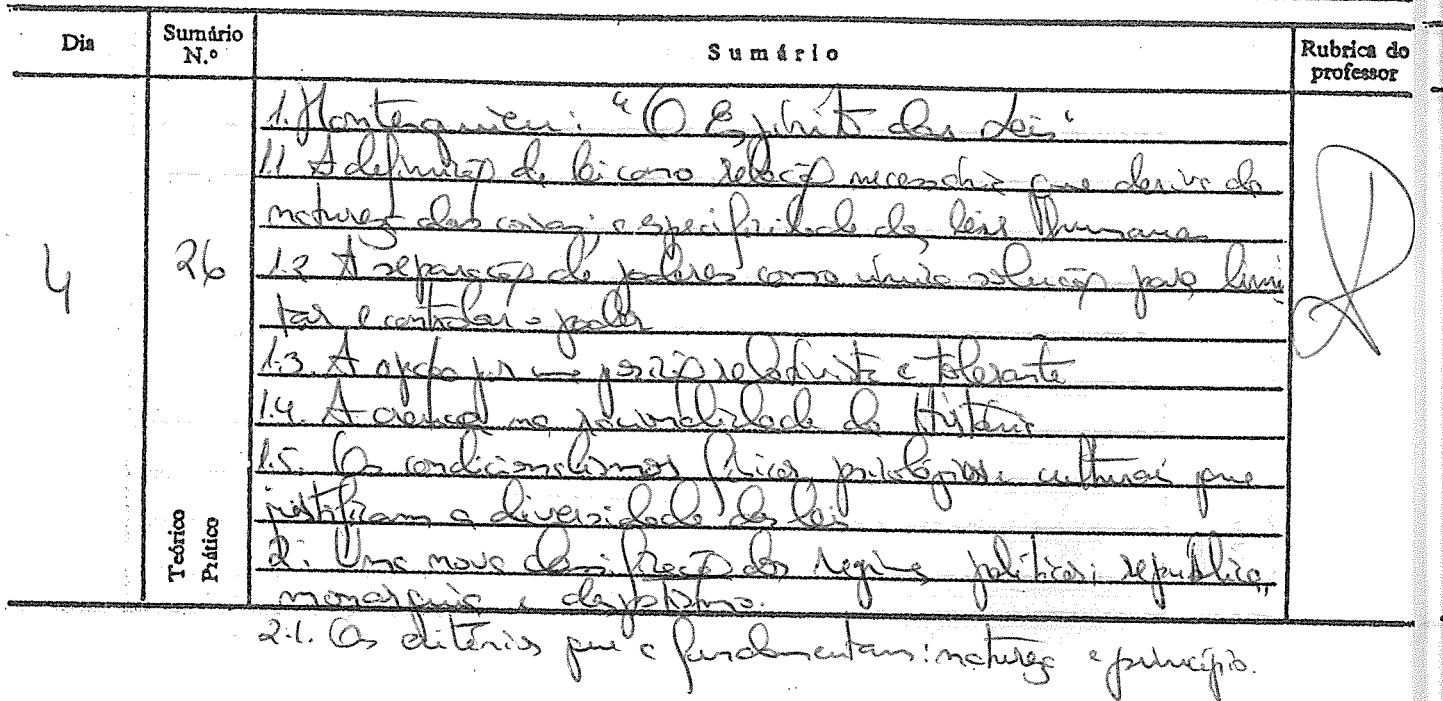 Dia
Sumário N.º
Sumário
Rubrica do professor
4
26
Teórico
Prático
1. Montesquieu: "O Espírito das Leis"
1.1 A definição de lei como relação necessária que deriva da
natureza das coisas; a especificidade das leis humanas
1.2 A separação de poderes como única solução para limi
tar e controlar o poder
1.3. A opção por uma posição relativista e tolerante
1.4. A crença na racionalidade da História
1.5. Os condicionalismos físicos, psicológicos e culturais que
justificam a diversidade das leis
2. Uma nova classificação dos regimes políticos: república,
monarquia e despotismo.
2.1. Os critérios que a fundamentam: natureza e princípio.